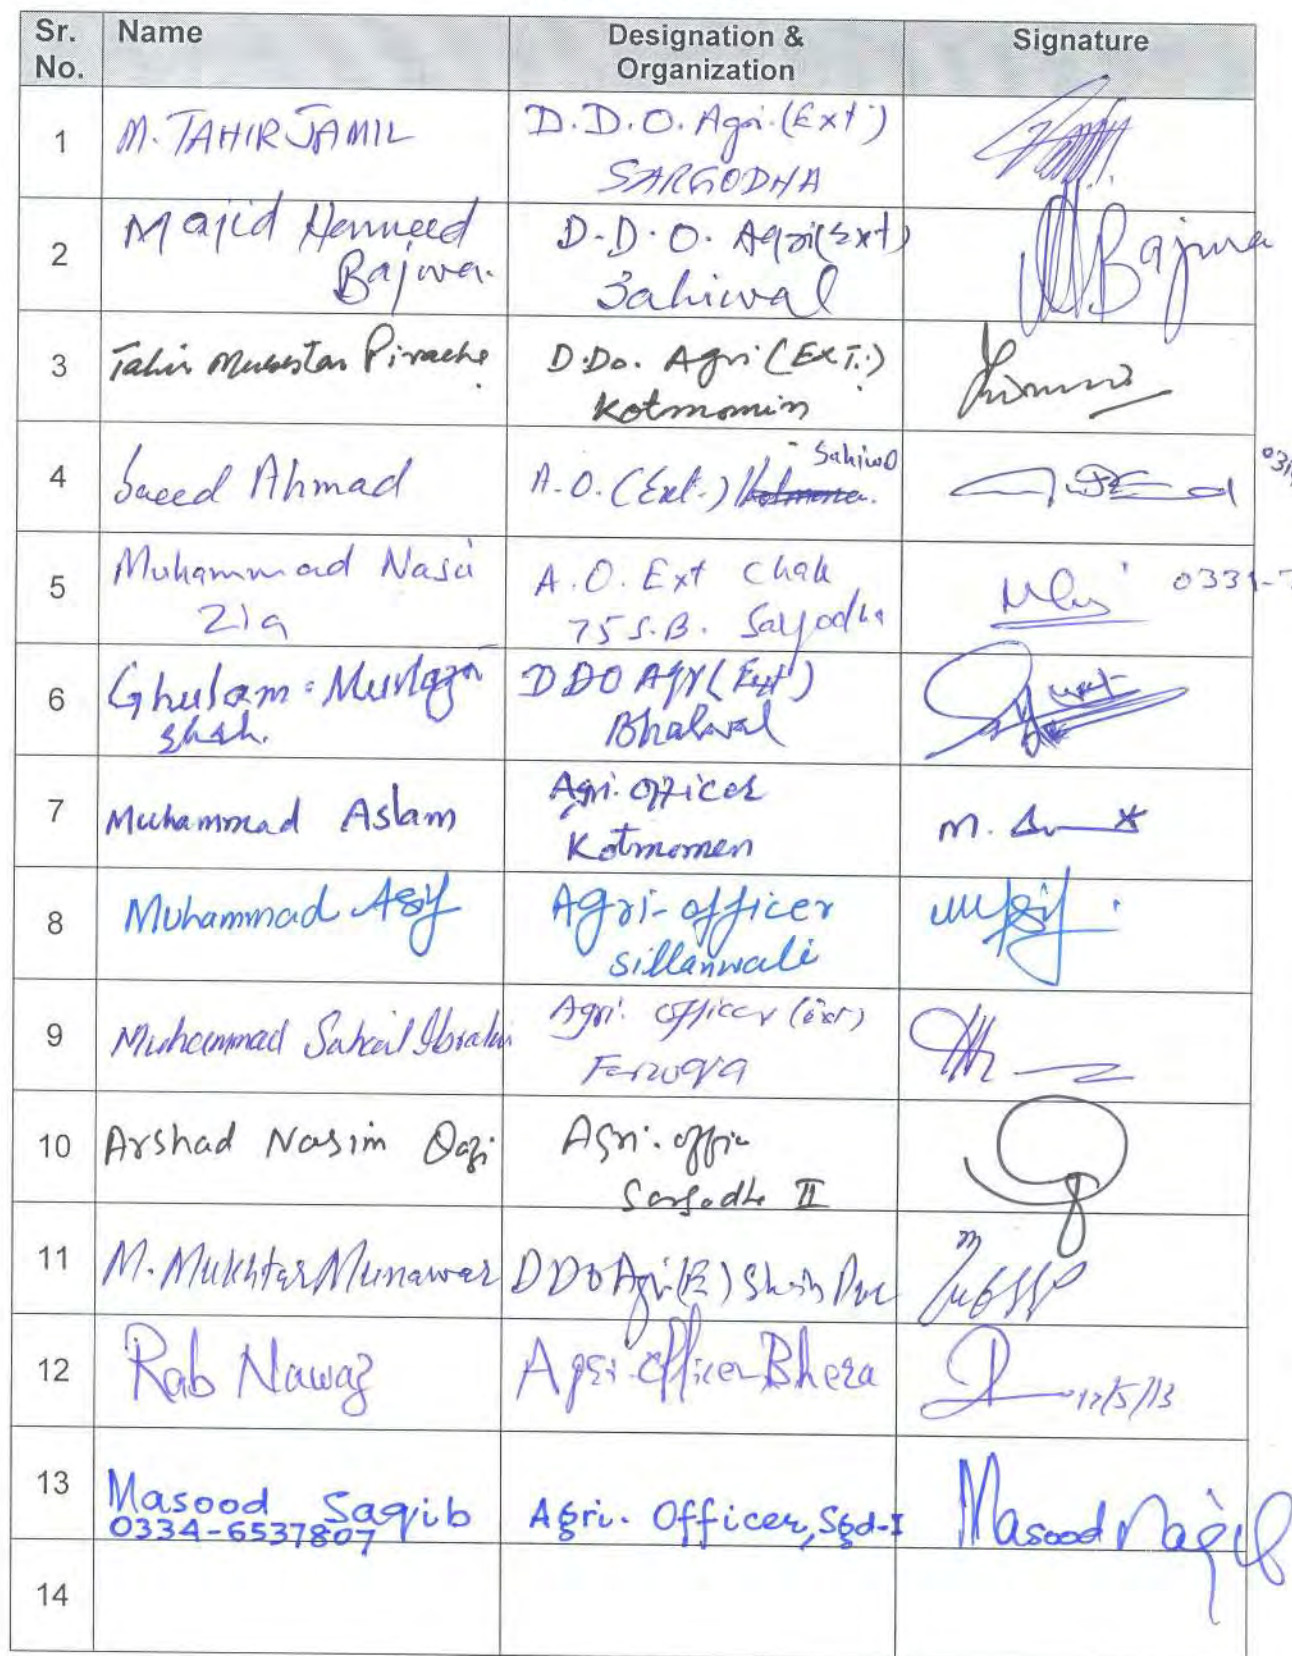 Sr. No. Name Designation & Organization Signature
1 M. TAHIR JAMIL D.D.O. Agri. (Ext:) SARGODHA
2 Majid Hameed Bajwa. D.D.O. Agri(Ext) Sahiwal Bajwa
3 Tahir Piracha D.Do. Agri (EXT.) Kotmomin
4 Saeed Ahmad A.O. (Ext.) Sahiwal
5 Muhammad Nasir Zia A.O. Ext Chak 75 S.B. Sargodha 0331-
6 Ghulam Murtaza Shah. DDO Agr (Ext) Bhalwal
7 Muhammad Aslam Agri. Officer Kotmomen M.
8 Muhammad Asif Agri-officer Sillanwali
9 Muhammad Sohail Ibrahim Agri. Officer (Ext) Farooqa
10 Arshad Nasim Qazi Agri. Offic Sargodha II
11 M. Mukhtar Munawar DDO Agri (E) Shah Pur
12 Rab Nawaz Agri. Officer Bhera 17/5/13
13 Masood Saqib Agri. Officer, Sgd-I Masood Saqib
0334-6537807
14